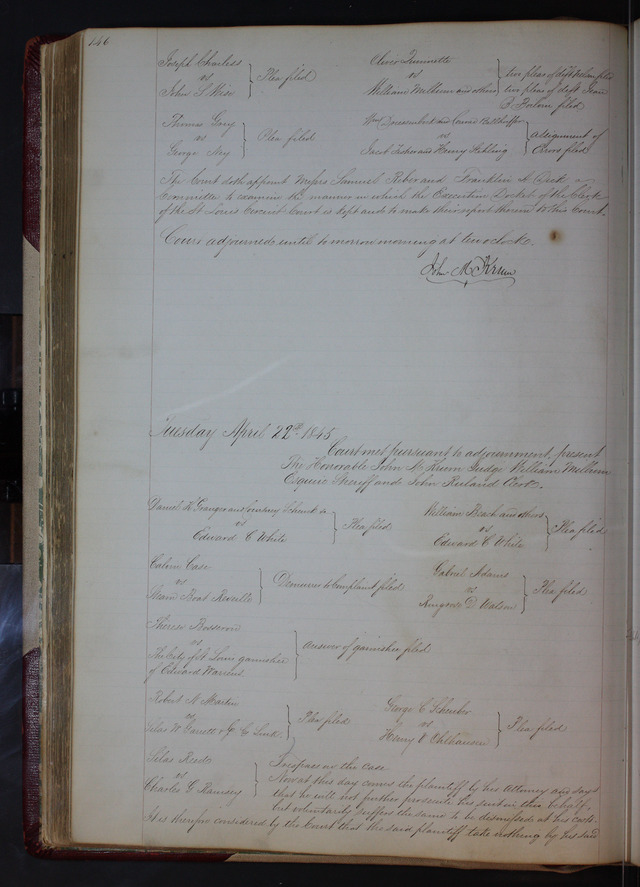 146
Joseph Charless
vs
John S. Wise
Plea filed
Oliver Quinnette
vs
William Milburn and others
two pleas of deft
two pleas of deft
filed
Thomas Gary
vs
George Ney
Plea filed
Wm and
vs
Jacob and Henry
assignment of
Errors filed
The Court doth appoint Messrs Samuel Reber and Franklin A. Dick a
Committee to examine the manner in which the Execution Docket of the Clerk
of the St Louis Circuit Court is kept and to make their report thereon to this Court.
Court adjourned until tomorrow morning at ten oclock.
John M. Krum
Tuesday April 22nd 1845
Court met pursuant to adjournment, present
The Honorable John M. Krum Judge William Milburn
Esquire Sheriff and John Ruland Clerk.
Daniel K. Granger and
vs
Edward C. White
Plea filed
William Beach and others
vs
Edward C. White
Plea filed
Calvin Case
vs
Steam Boat Reveille
Demurrer to Complaint filed
Gabriel Adams
vs
Ringrose D. Watson
Plea filed
Therese
vs
The City of St Louis garnishee
of Edward Warrens
answer of garnishee filed
Robert N. Martin
vs
Silas W. &
Plea filed
George C.
vs
Henry
Plea filed
Silas Reed
vs
Charles G. Ramsey
Trespass on the case
Now at this day comes the plaintiff by his Attorney and says
that he will not further prosecute his suit in this behalf,
but voluntarily suffers the same to be dismissed at his costs.
It is therefore considered by the Court that the said plaintiff take nothing by his said